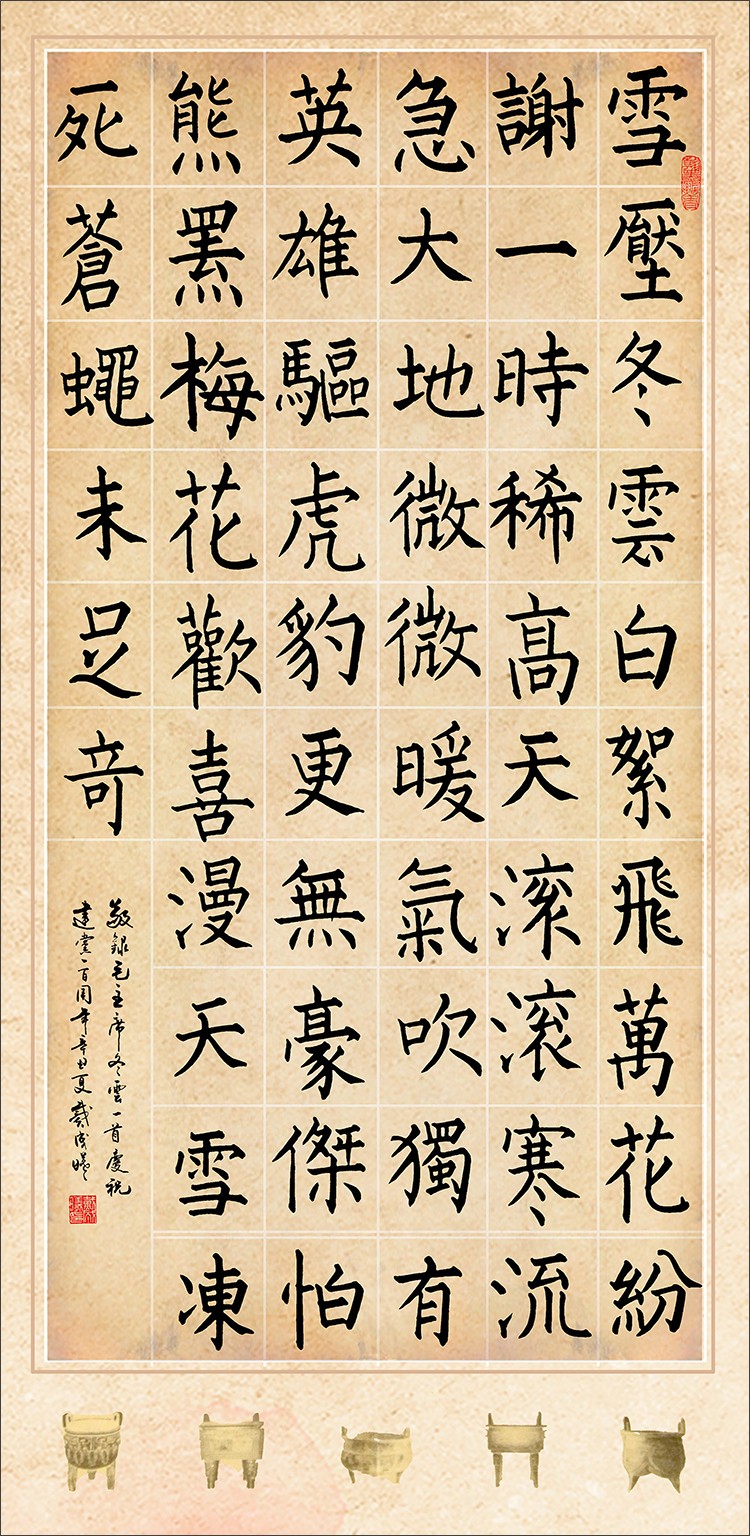 雪壓冬雲白絮飛萬花紛
謝一時稀髙天滚滚寒流
急大地微微暖氣吹獨有
英雄驅虎豹更無豪傑怕
熊罴梅花歡喜漫天雪凍
死蒼蠅未足奇
敬録毛主席冬雲一首慶祝
建黨一百周年辛丑夏戴成